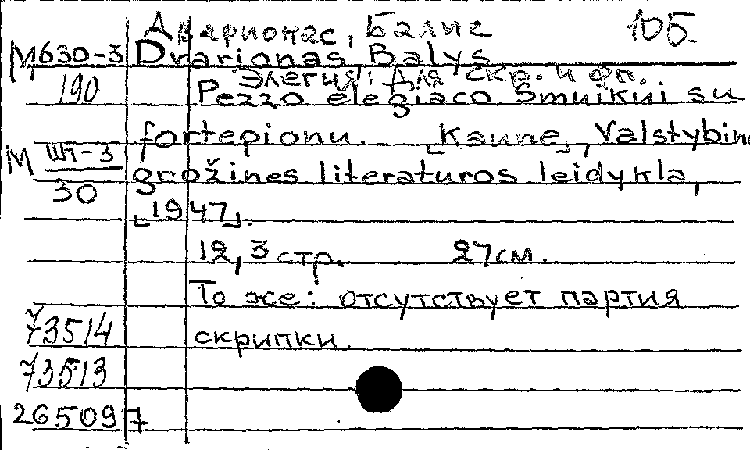 Дварионас, Балис 105
М630-3 Dvarionas, Balys
Элегия: Для скр. и фп.
190 Pezzo elegiaco Smuikui su
fortepionu. [Kaune], Valstybin
М Шт-3
30
grožines literaturos leidykla,
[1947].
12, 3 стр. 27 см.
То же: отсутствует партия
73514 скрипки.
73513
265097